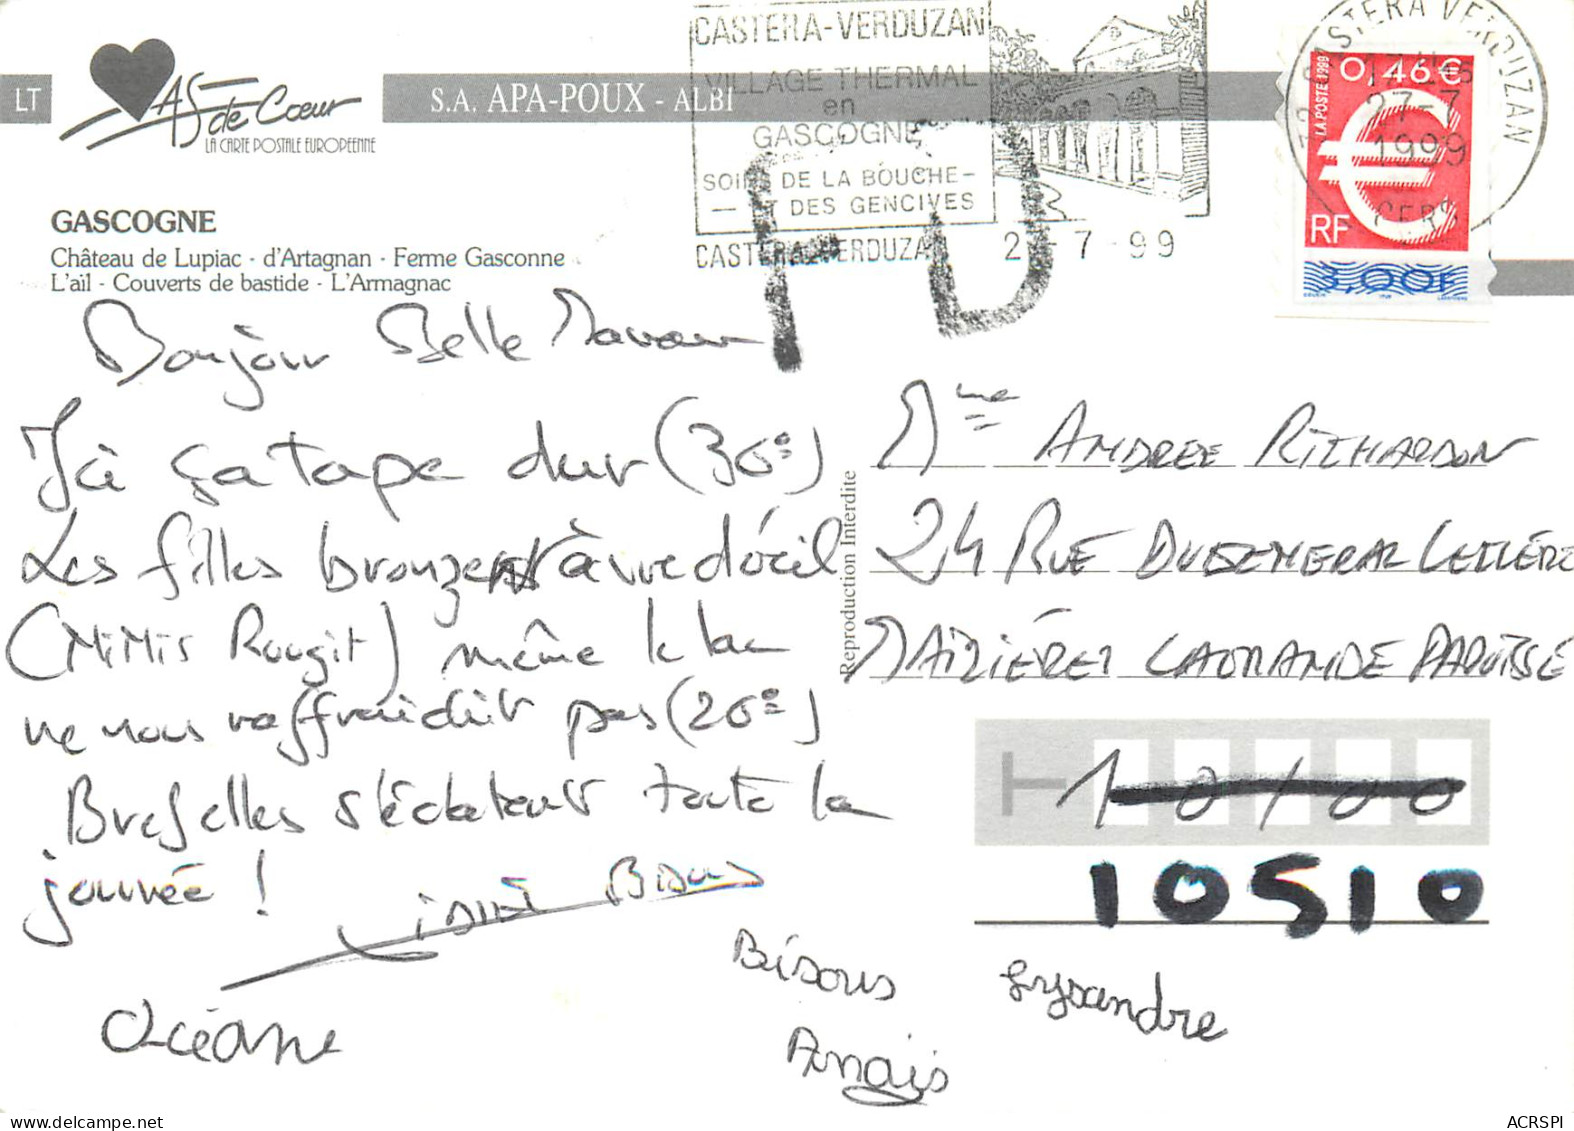 CASTERA-VERDUZAN
VILLAGE THERMAL
en
GASCOGNE
SOINS DE LA BOUCHE-
— ET DES GENCIVES
CASTERA-VERDUZAN 2 -7 -99
CASTERA VERDUZAN
27-7
1999
GERS
LA POSTE 1999
0,46 €
RF
3,00F
LT
As de Cœur
LA CARTE POSTALE EUROPÉENNE
S.A. APA-POUX - ALBI
GASCOGNE
Château de Lupiac - d'Artagnan - Ferme Gasconne
L'ail - Couverts de bastide - L'Armagnac
Bonjour Belle Maman
Ici ça tape dur (36°)
Les filles bronzent à vue d'œil
(Mimis Rougit) même le lac
ne nous raffraîchit pas (26°)
Bref elles s'éclatent toute la
journée !
Bisous
Océane
Bisous
Anaïs
Lysandre
Reproduction Interdite
Mme ANDREE RICHARDON
24 RUE DU GENERAL LECLERC
MAIZIÈRES LA GRANDE PAROISSE
10100
10510
ACRSPI